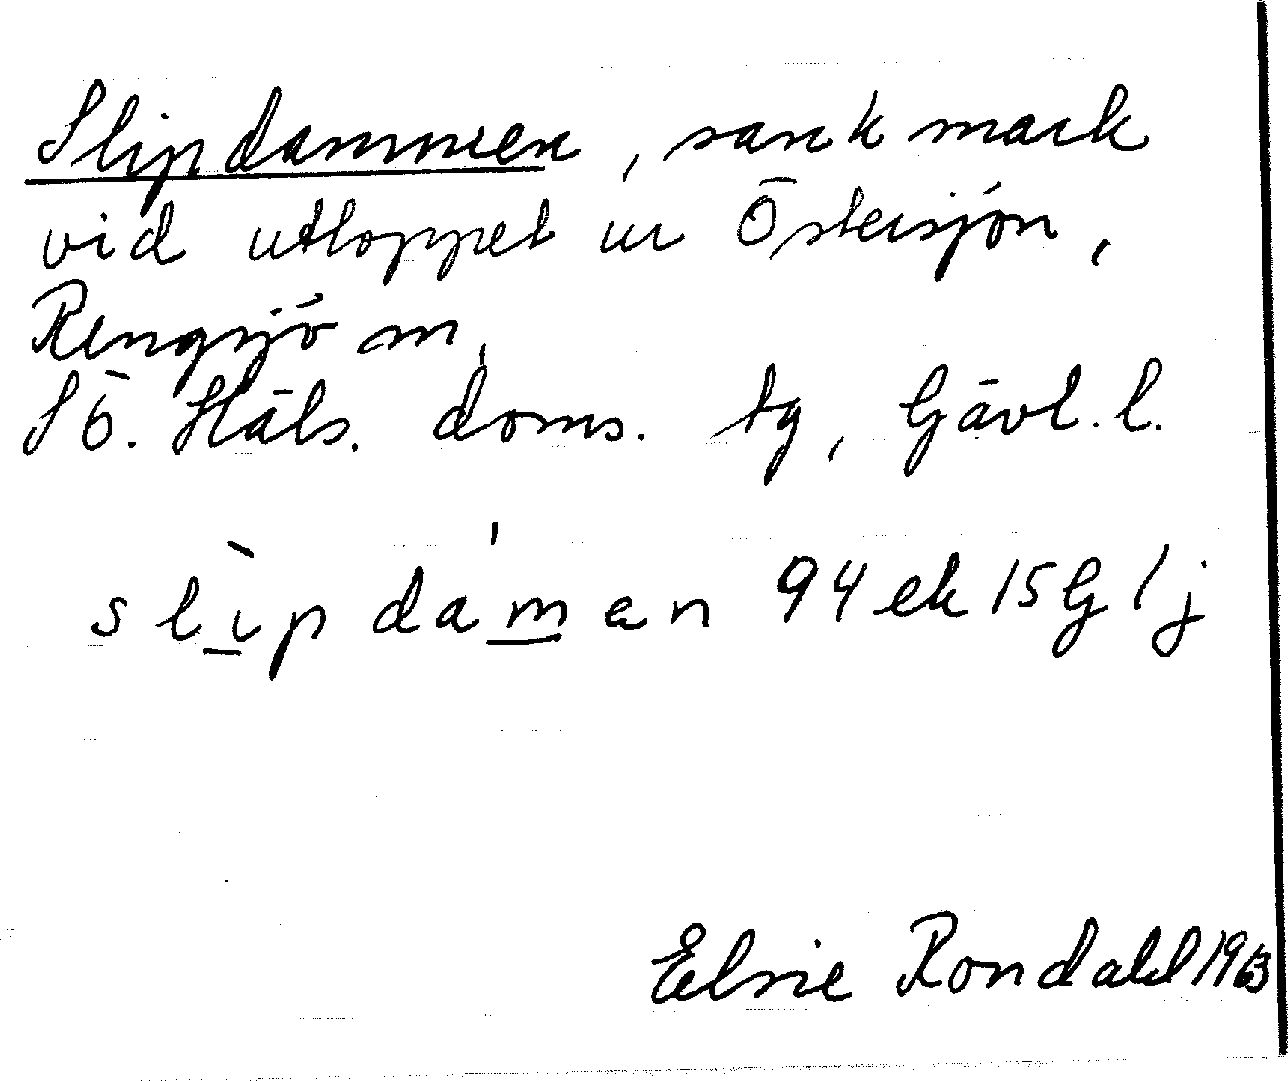 Slipdammen, sank mark
vid utloppet ur Östersjön,
Rengsjö sn,
Sö. Häls. doms. tg, Gävl. l.
slìpdam̲en 94 ek 15 G 1 j
Elsie Rondahl 1963